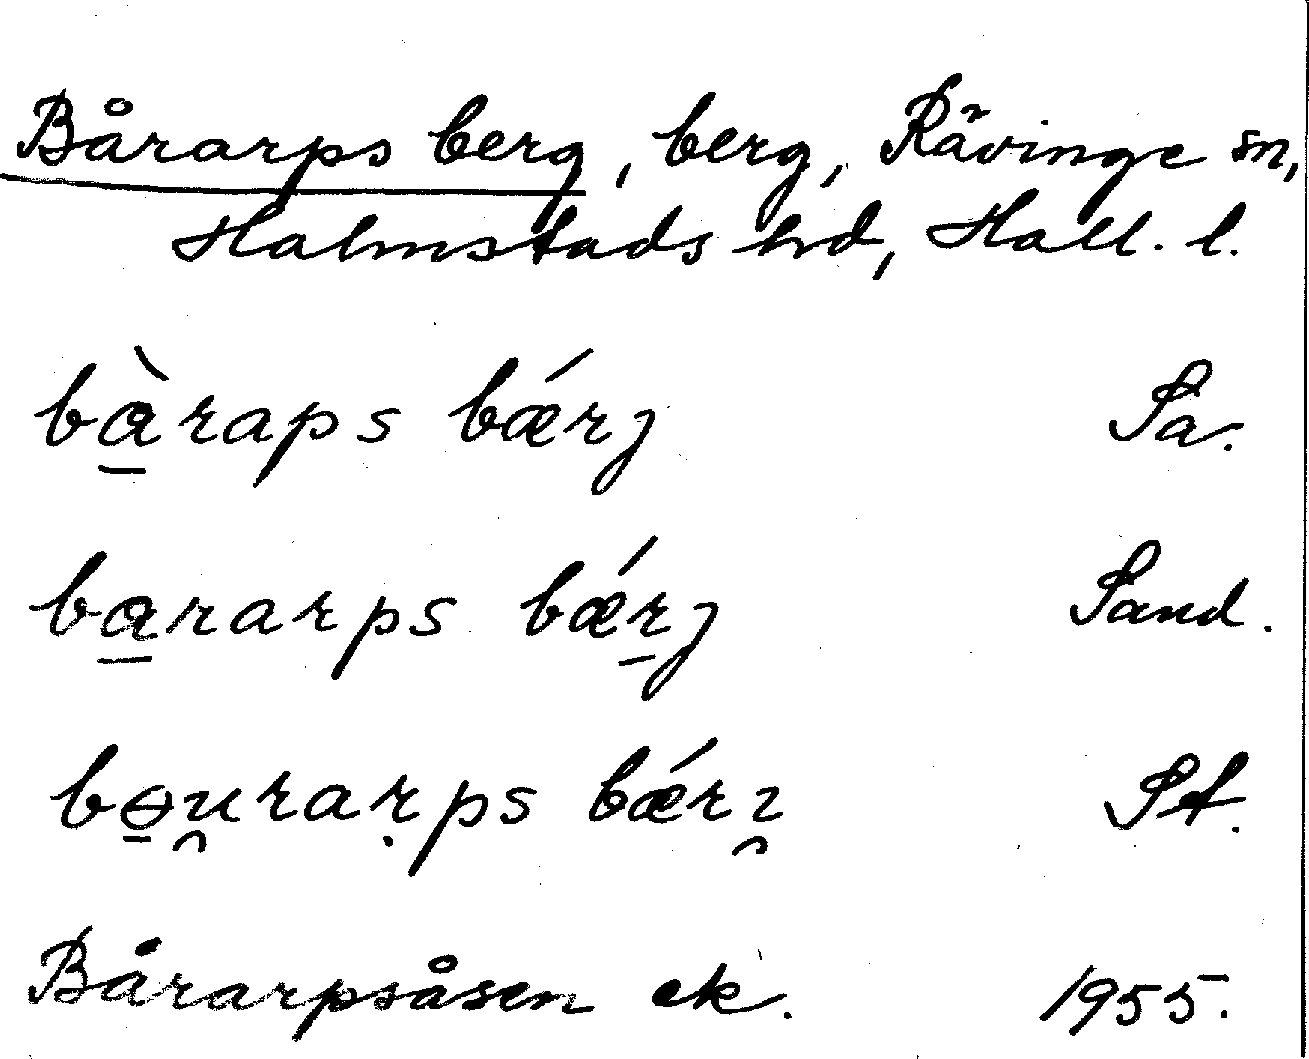 Bårarps berg, berg, Rävinge sn,
Halmstads hd, Hall. l.
bа̱̀raps bǽrj Sa.
ba̱rarps bǽṟj Sand.
bɵ̱u̯rarp̣s bǽrı̯ St.
Bårarpsåsen ek. 1955.